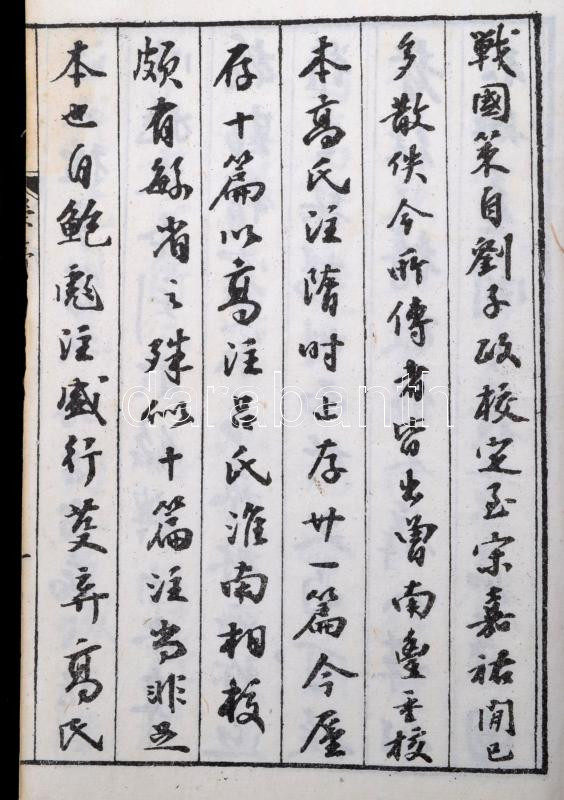 戰國策自劉子政校定至宋嘉祐閒已
多散佚今所傳者皆出曾南豐重校
本高氏注隋時止存廿一篇今廑
存十篇以高注呂氏淮南相校
頗有緐省之殊似十篇注尚非足
本也自鮑彪注盛行芟弃高氏
darabanth